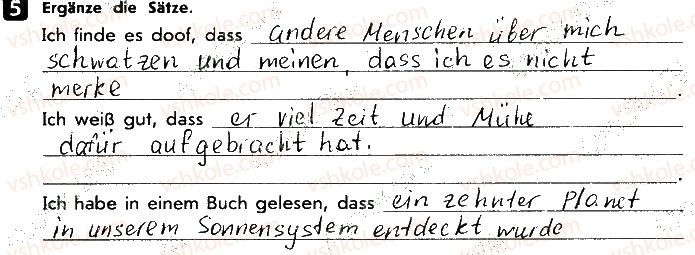 5 Ergänze die Sätze.
Ich finde es doof, dass andere Menschen über mich
schwatzen und meinen, dass ich es nicht
merke.
Ich weiß gut, dass er viel Zeit und Mühe
dafür aufgebracht hat.
Ich habe in einem Buch gelesen, dass ein zehnter Planet
in unserem Sonnensystem entdeckt wurde.